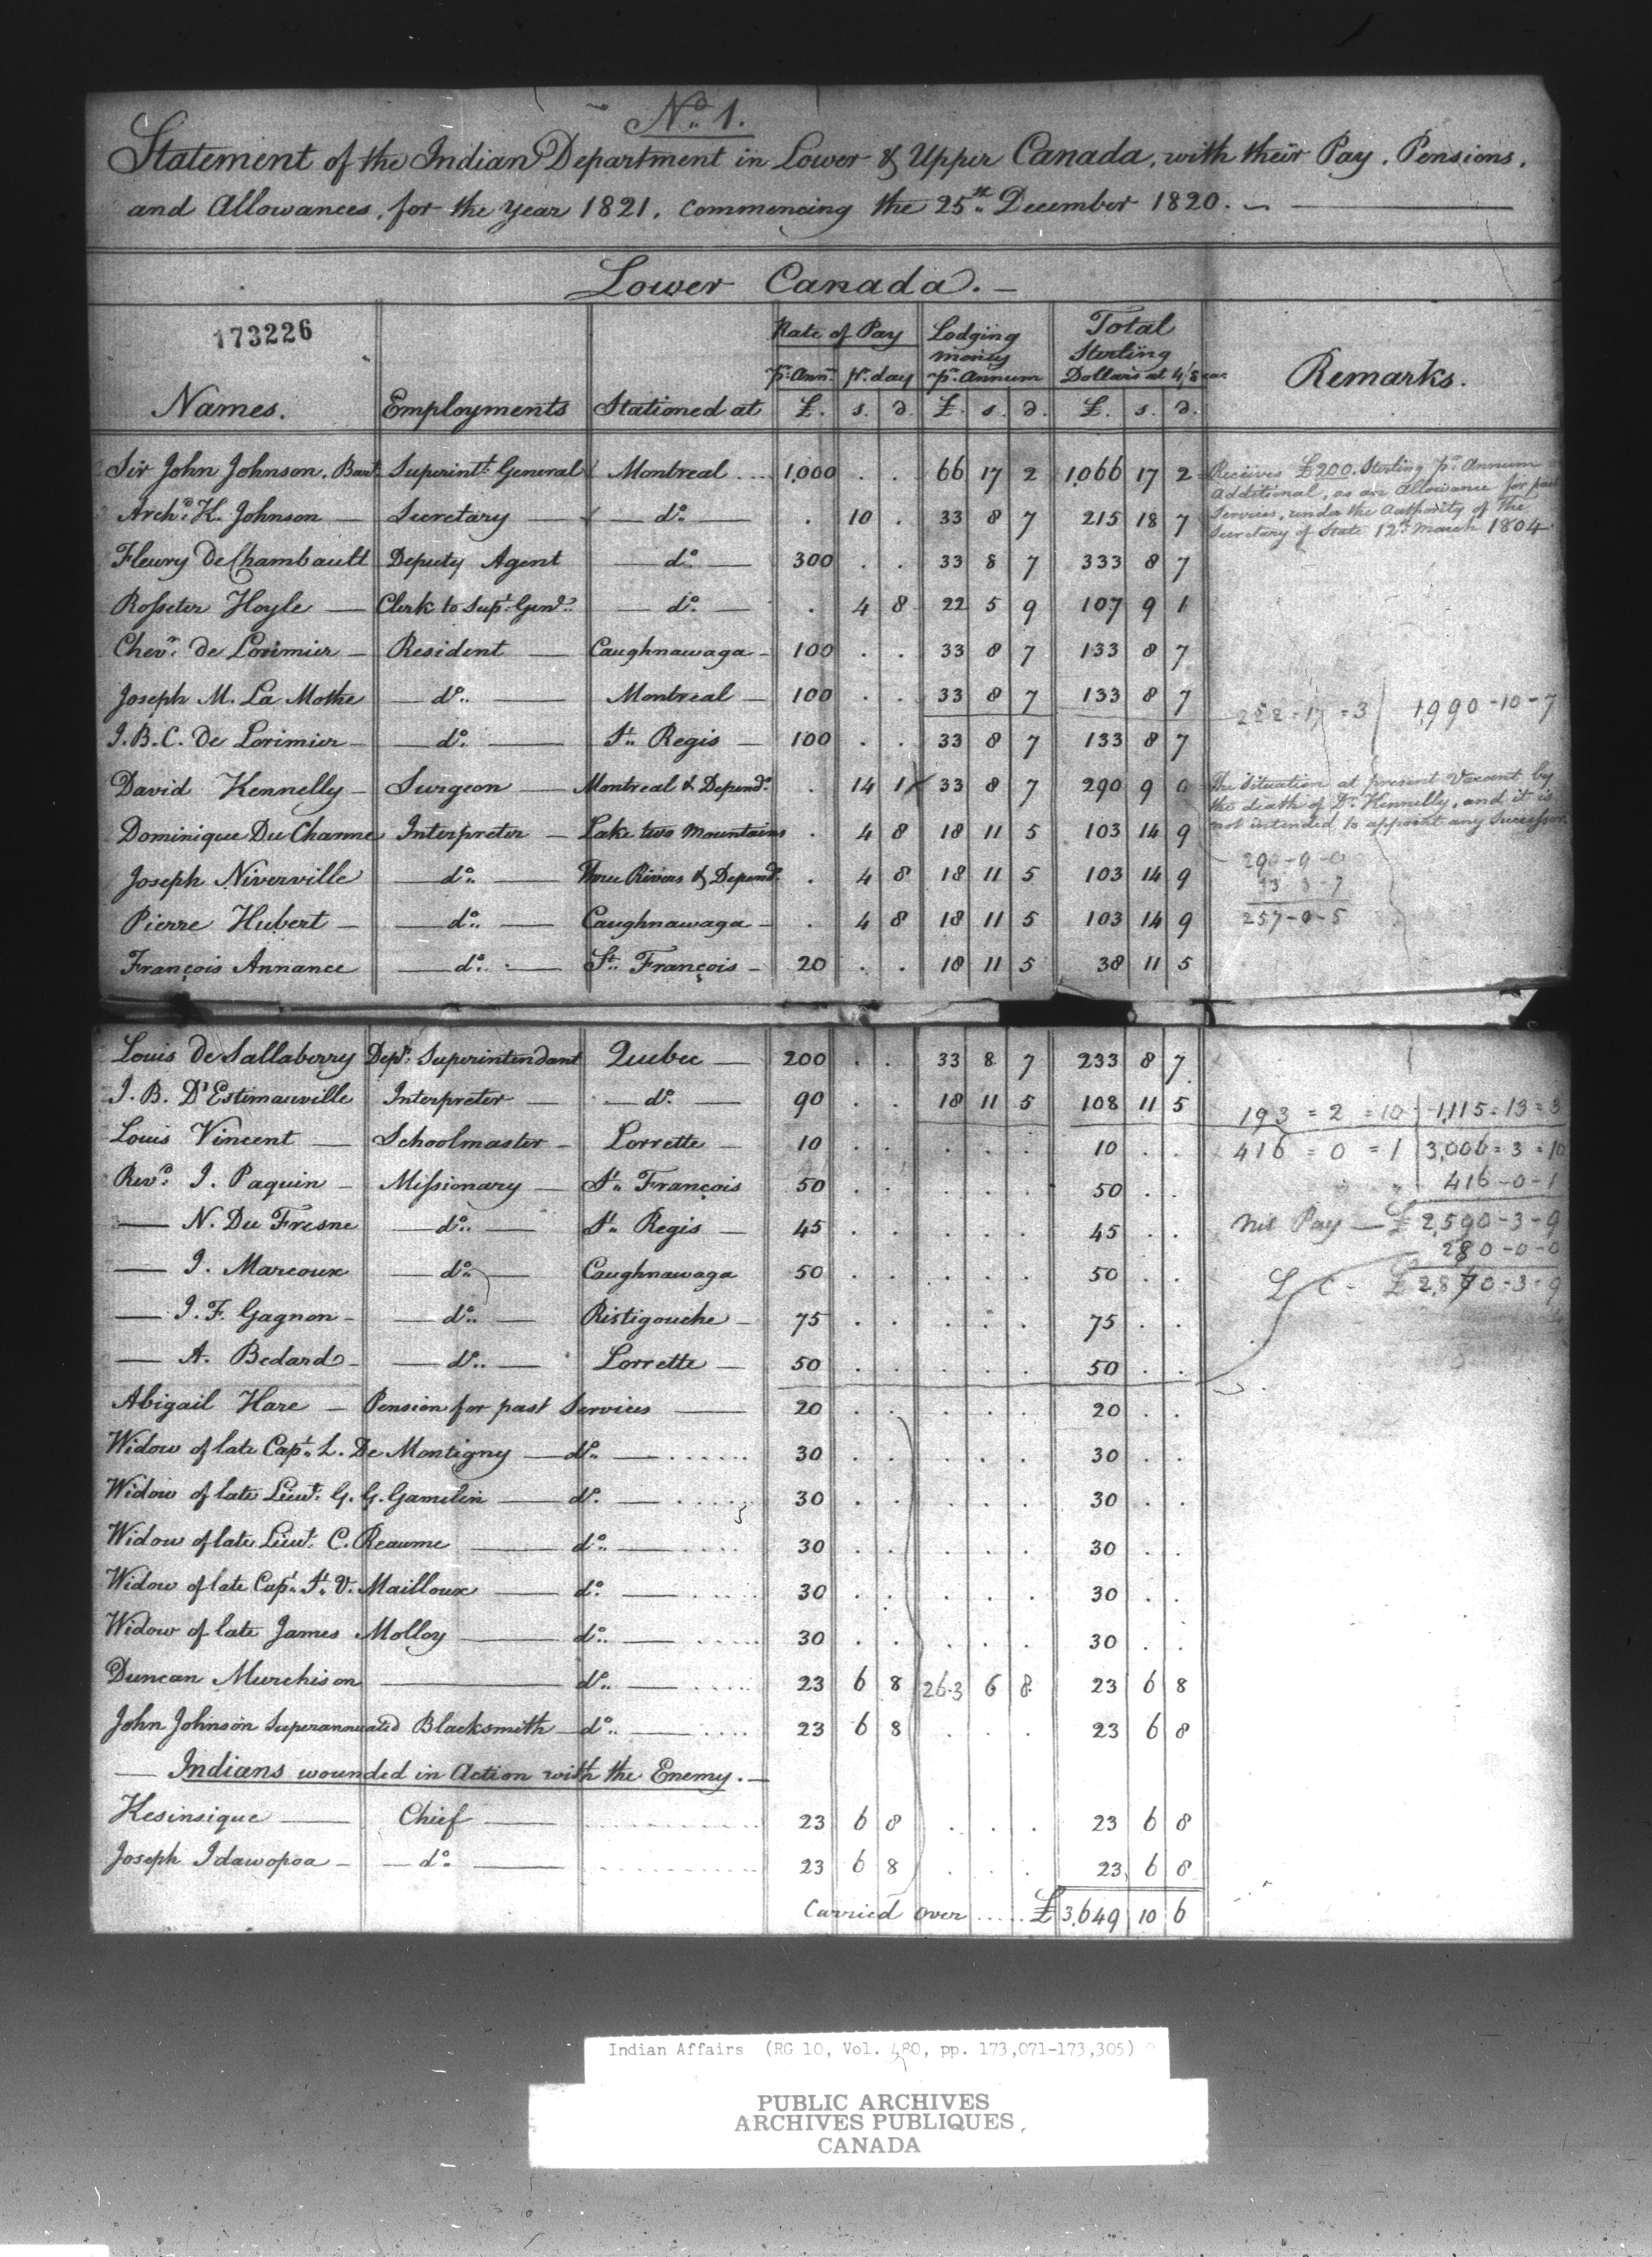 No. 1.
Statement of the Indian Department in Lower & Upper Canada, with their Pay, Pensions,
and Allowances, for the Year 1821, commencing the 25th December 1820.
Lower Canada.
173226
Names. Employments Stationed at Rate of Pay pr. Ann. £. pr. day s. d. Lodging money pr. Annum £. s. d. Total Sterling Dollars at 4/8 ea. £. s. d. Remarks.
Sir John Johnson, Bart. Superintt. General Montreal 1,000 . . 66 17 2 1,066 17 2 Receives £200. Sterling pr. Annum
Additional, as an Allowance for past
Services, under the Authority of the
Secretary of State 12th March 1804
Archd. K. Johnson Secretary do. . 10 . 33 8 7 215 18 7
Fleury DeChambault Deputy Agent do. 300 . . 33 8 7 333 8 7
Rosseter Hoyle Clerk to Supt. Genl. do. . 4 8 22 5 9 107 9 1
Chevr. de Lorimier Resident Caughnawaga 100 . . 33 8 7 133 8 7
Joseph M. La Mothe do. Montreal 100 . . 33 8 7 133 8 7
222=17=3 1,990-10-7
J. B. C. de Lorimier do. St. Regis 100 . . 33 8 7 133 8 7
David Kennelly Surgeon Montreal & Depend. . 14 1 33 8 7 290 9 0 The Situation at present Vacant by
the death of Dr. Kennelly, and it is
not intended to appoint any Successor.
Dominique Du Charme Interpreter Lake two Mountains . 4 8 18 11 5 103 14 9
Joseph Niverville do. Three Rivers & Depend. . 4 8 18 11 5 103 14 9
290-9-0
33-8-7
257-0-5
Pierre Hubert do. Caughnawaga . 4 8 18 11 5 103 14 9
François Annance do. St. François 20 . . 18 11 5 38 11 5
Louis De Sallaberry Depy. Superintendant Quebec 200 . . 33 8 7 233 8 7
J. B. D'Estimauville Interpreter do. 90 . . 18 11 5 108 11 5 193=2=10 1,115=13=3
Louis Vincent Schoolmaster Lorrette 10 . . . . . 10 . . 416=0=1 3,006=3=10
Revd. J. Paquin Missionary St. François 50 . . . . . 50 . . 416-0-1
N. Du Fresne do. St. Regis 45 . . . . . 45 . . Nett Pay £2,590-3-9
280-0-0
J. Marcoux do. Caughnawaga 50 . . . . . 50 . . L. C. £2,870-3-9
J. F. Gagnon do. Ristigouche 75 . . . . . 75 . .
A. Bedard do. Lorrette 50 . . . . . 50 . .
Abigail Hare Pension for past Services 20 . . . . . 20 . .
Widow of late Capt. L. De Montigny do. 30 . . . . . 30 . .
Widow of late Lieut. G. G. Gamelin do. 30 . . . . . 30 . .
Widow of late Lieut. C. Reaume do. 30 . . . . . 30 . .
Widow of late Capt. St. V. Mailloux do. 30 . . . . . 30 . .
Widow of late James Molloy do. 30 . . . . . 30 . .
Duncan Murchison do. 23 6 8 263 6 8 23 6 8
John Johnson Superannuated Blacksmith do. 23 6 8 . . . 23 6 8
Indians wounded in Action with the Enemy.
Kesinsique Chief 23 6 8 . . . 23 6 8
Joseph Idawopoa do. 23 6 8 . . . 23 6 8
Carried over ..... £3,649 10 6
Indian Affairs (RG 10, Vol. 480, pp. 173,071-173,305)
PUBLIC ARCHIVES
ARCHIVES PUBLIQUES
CANADA